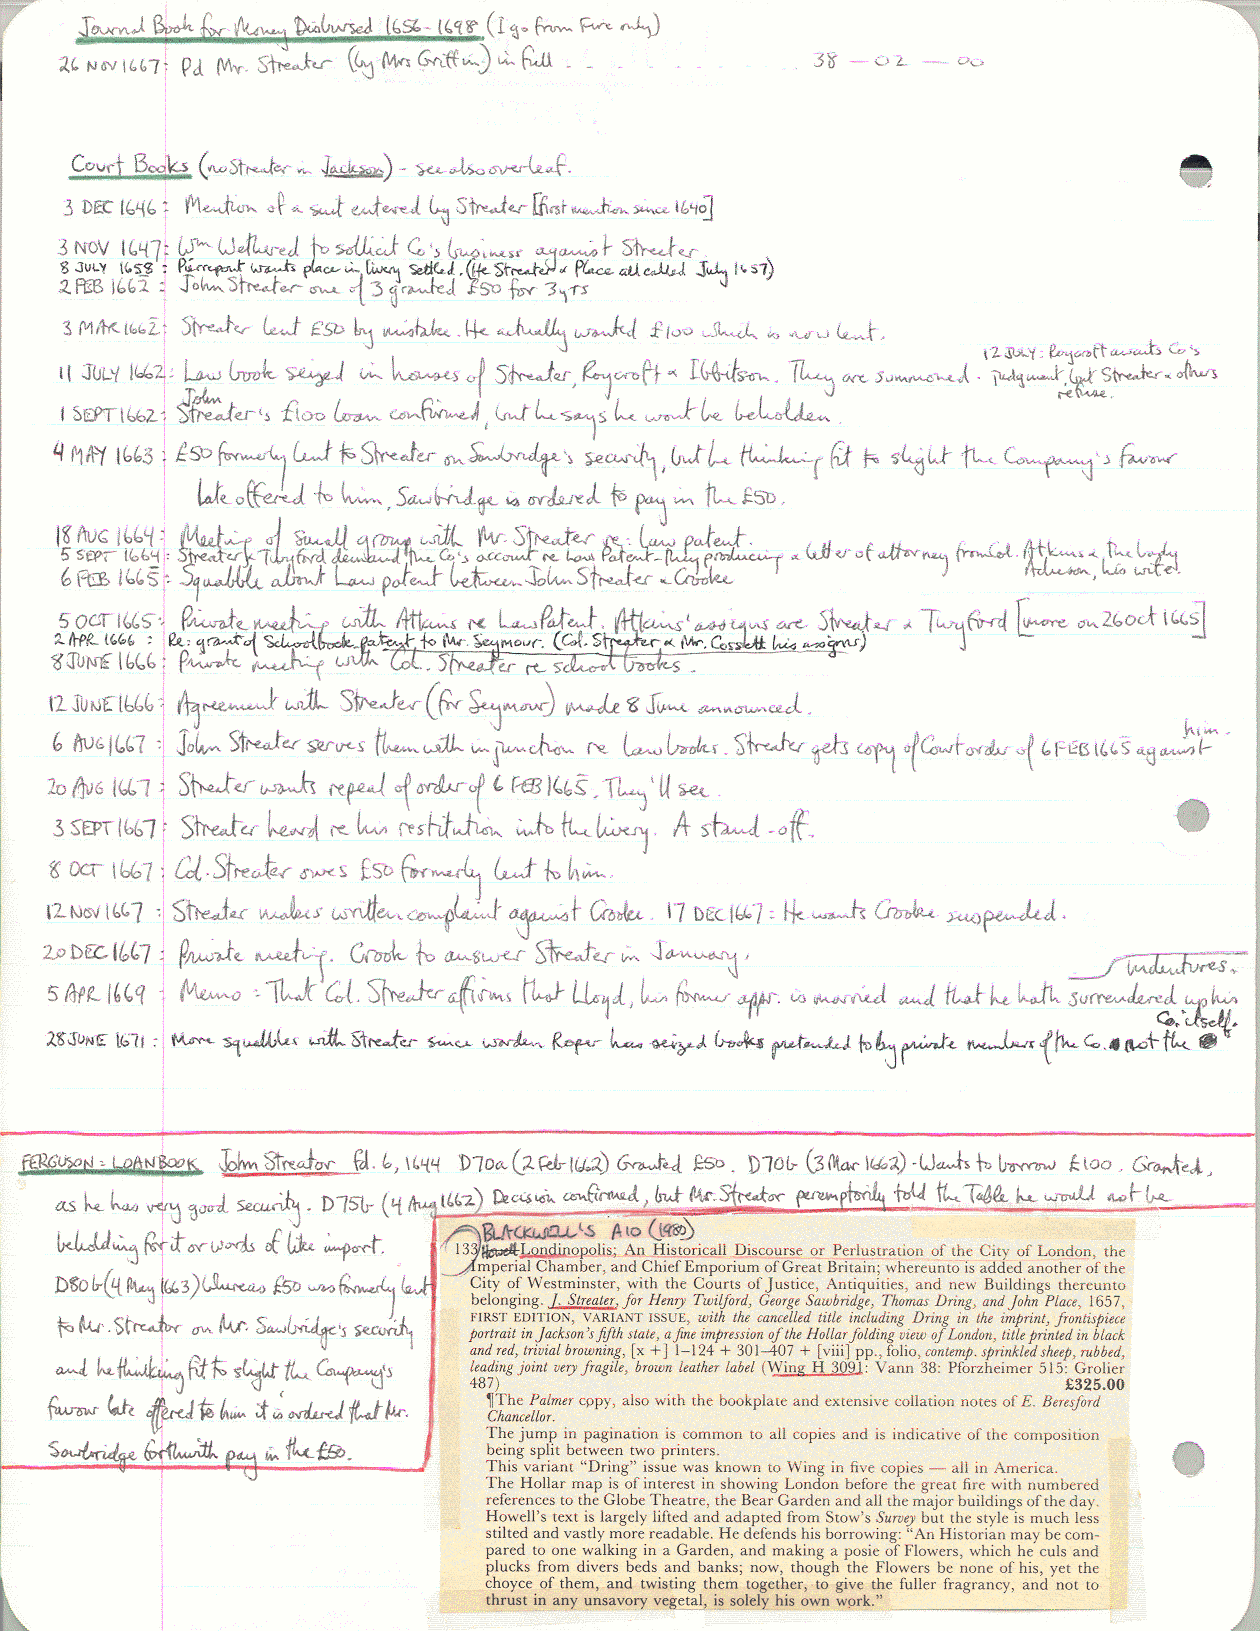 Journal Book for Money Disbursed 1656-1698 (I go from Fire only)
26 NOV 1667: Pd Mr. Streater (by Mrs Griffin) in full . . . . . . . . . . 38 - 02 - 00
Court Books (no Streater in Jackson) - see also overleaf.
3 DEC 1646: Mention of a suit entered by Streater [first mention since 1640]
3 NOV 1647: Wm Wethered to sollicit Co's business against Streeter.
8 JULY 1658: Pierrepont wants place in livery settled. (He Streater & Place all called July 1657)
2 FEB 1662: John Streater one of 3 granted £50 for 3 yrs
3 MAR 1662: Streater lent £50 by mistake. He actually wanted £100 which is now lent.
11 JULY 1662: Law book seized in houses of Streater, Roycroft & Ibbitson. They are summoned.
12 JULY: Roycroft awaits Co's
judgment, but Streater & others
refuse.
1 SEPT 1662: John Streater's £100 loan confirmed, but he says he wont be beholden.
4 MAY 1663: £50 formerly lent to Streater on Sawbridge's security, but he thinking fit to slight the Company's favour
late offered to him, Sawbridge is ordered to pay in the £50.
18 AUG 1664: Meeting of small group with Mr. Streater re: Law patent.
5 SEPT 1664: Streater & Twyford demand the Co's account re Law Patent - they producing a letter of attorney from Col. Atkins & the lady
Acheson, his wife.
6 FEB 1665: Squabble about Law patent between John Streater & Crooke
5 OCT 1665: Private meeting with Atkins re Law Patent. Atkins' assigns are Streater & Twyford [more on 26 Oct 1665]
2 APR 1666: Re: grant of Schoolbook patent to Mr. Seymour. (Col. Streater & Mr. Cosslett his assigns)
8 JUNE 1666: Private meeting with Col. Streater re school books.
12 JUNE 1666: Agreement with Streater (for Seymour) made 8 June announced.
6 AUG 1667: John Streater serves them with injunction re law books. Streater gets copy of Court order of 6 FEB 1665 against
him.
20 AUG 1667: Streater wants repeal of order of 6 FEB 1665. They'll see.
3 SEPT 1667: Streater heard re his restitution into the livery. A stand-off.
8 OCT 1667: Col. Streater owes £50 formerly lent to him.
12 NOV 1667: Streater makes written complaint against Crooke. 17 DEC 1667: He wants Crooke suspended.
20 DEC 1667: Private meeting. Crook to answer Streater in January.
5 APR 1669 - Memo: That Col. Streater affirms that Lloyd, his former appr. is married and that he hath surrendered up his
indentures.
28 JUNE 1671: More squabbles with Streater since warden Roper has seized books pretended to by private members of the Co. & not the
Co. itself.
FERGUSON: LOANBOOK John Streator fd. 6, 1644 D70a (2 Feb 1662) Granted £50. D70b (3 Mar 1662) - Wants to borrow £100. Granted,
as he has very good security. D75b (4 Aug 1662) Decision confirmed, but Mr. Streator peremptorily told the Table he would not be
beholding for it or words of like import.
D80b (4 May 1663) Whereas £50 was formerly lent
to Mr. Streator on Mr. Sawbridge's security
and he thinking fit to slight the Company's
favour late offered to him it is ordered that Mr.
Sawbridge forthwith pay in the £50.
BLACKWELL'S A10 (1980)
133 Howell Londinopolis; An Historicall Discourse or Perlustration of the City of London, the
Imperial Chamber, and Chief Emporium of Great Britain; whereunto is added another of the
City of Westminster, with the Courts of Justice, Antiquities, and new Buildings thereunto
belonging. J. Streater, for Henry Twilford, George Sawbridge, Thomas Dring, and John Place, 1657,
FIRST EDITION, VARIANT ISSUE, with the cancelled title including Dring in the imprint, frontispiece
portrait in Jackson's fifth state, a fine impression of the Hollar folding view of London, title printed in black
and red, trivial browning, [x +] 1–124 + 301–407 + [viii] pp., folio, contemp. sprinkled sheep, rubbed,
leading joint very fragile, brown leather label (Wing H 3091: Vann 38: Pforzheimer 515: Grolier
487) £325.00
¶The Palmer copy, also with the bookplate and extensive collation notes of E. Beresford
Chancellor.
The jump in pagination is common to all copies and is indicative of the composition
being split between two printers.
This variant "Dring" issue was known to Wing in five copies — all in America.
The Hollar map is of interest in showing London before the great fire with numbered
references to the Globe Theatre, the Bear Garden and all the major buildings of the day.
Howell's text is largely lifted and adapted from Stow's Survey but the style is much less
stilted and vastly more readable. He defends his borrowing: "An Historian may be com-
pared to one walking in a Garden, and making a posie of Flowers, which he culs and
plucks from divers beds and banks; now, though the Flowers be none of his, yet the
choyce of them, and twisting them together, to give the fuller fragrancy, and not to
thrust in any unsavory vegetal, is solely his own work."